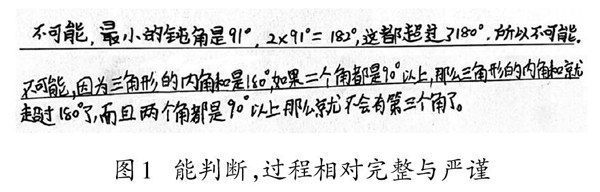 不可能,最小的钝角是91°,2×91°=182°,这都超过了180°.所以不可能.
不可能,因为三角形的内角和是180°,如果二个角都是90°以上,那么三角形的内角和就
超过180°了,而且两个角都是90°以上那么就不会有第三个角了。
图1 能判断,过程相对完整与严谨